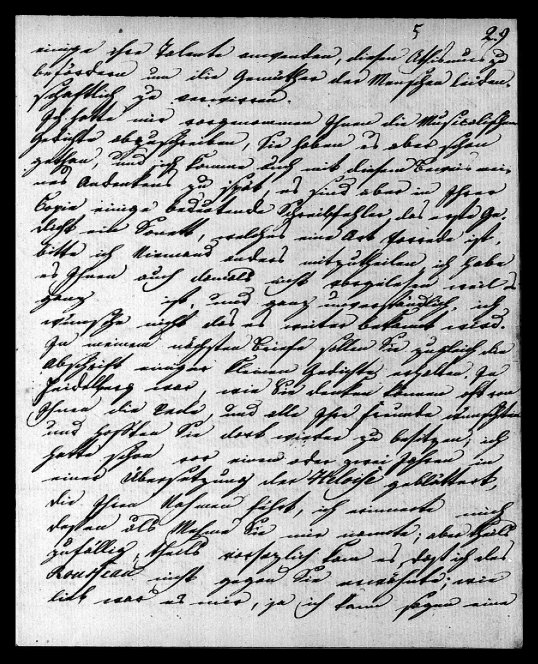 5 29
einige ihre Talente anwenden, diesen Athismus zu
befördern um die Gemüther der Menschen leiden-
schaftlich zu verwirren.
Ich hatte mir vorgenommen Ihnen die Musicalischen
Gedichte abzuschreiben, Sie haben es aber schon
gethan, und ich komme auch mit diesem Beweis mei-
nes Andenkens zu spät, es sind aber in Ihrer
Copie einige bedeutende Schreibfehler, das erste Ge-
dicht ein Sonett, welches eine Art Vorrede ist,
bitte ich Niemand anders mitzutheilen, ich habe
es Ihnen auch damals nicht vorgelesen weil es
ganz ist, und ganz unverständlich, ich
wünsche nicht das es weiter bekannt wird.
In meinem nächsten Briefe sollen Sie zugleich die
Abschrift einiger kleinen Gedichte erhalten. In
Heidelberg war, wie Sie denken können oft von
Ihnen die Rede, und alle Ihre Freunde wünschten
und hofften Sie dort wieder zu besitzen, ich
hatte schon vor einem oder zwei Jahren in
einer Übersetzung der Heloise geblättert,
die Ihren Nahmen führt, ich erinnerte mich
dessen als Mahne Sie mir nannte, aber theils
zufällig, theils vorsezlich kam es, dast ich des
Rousseau nicht gegen Sie erwähnte; wie
lieb war es mir, ja ich kann sagen eine